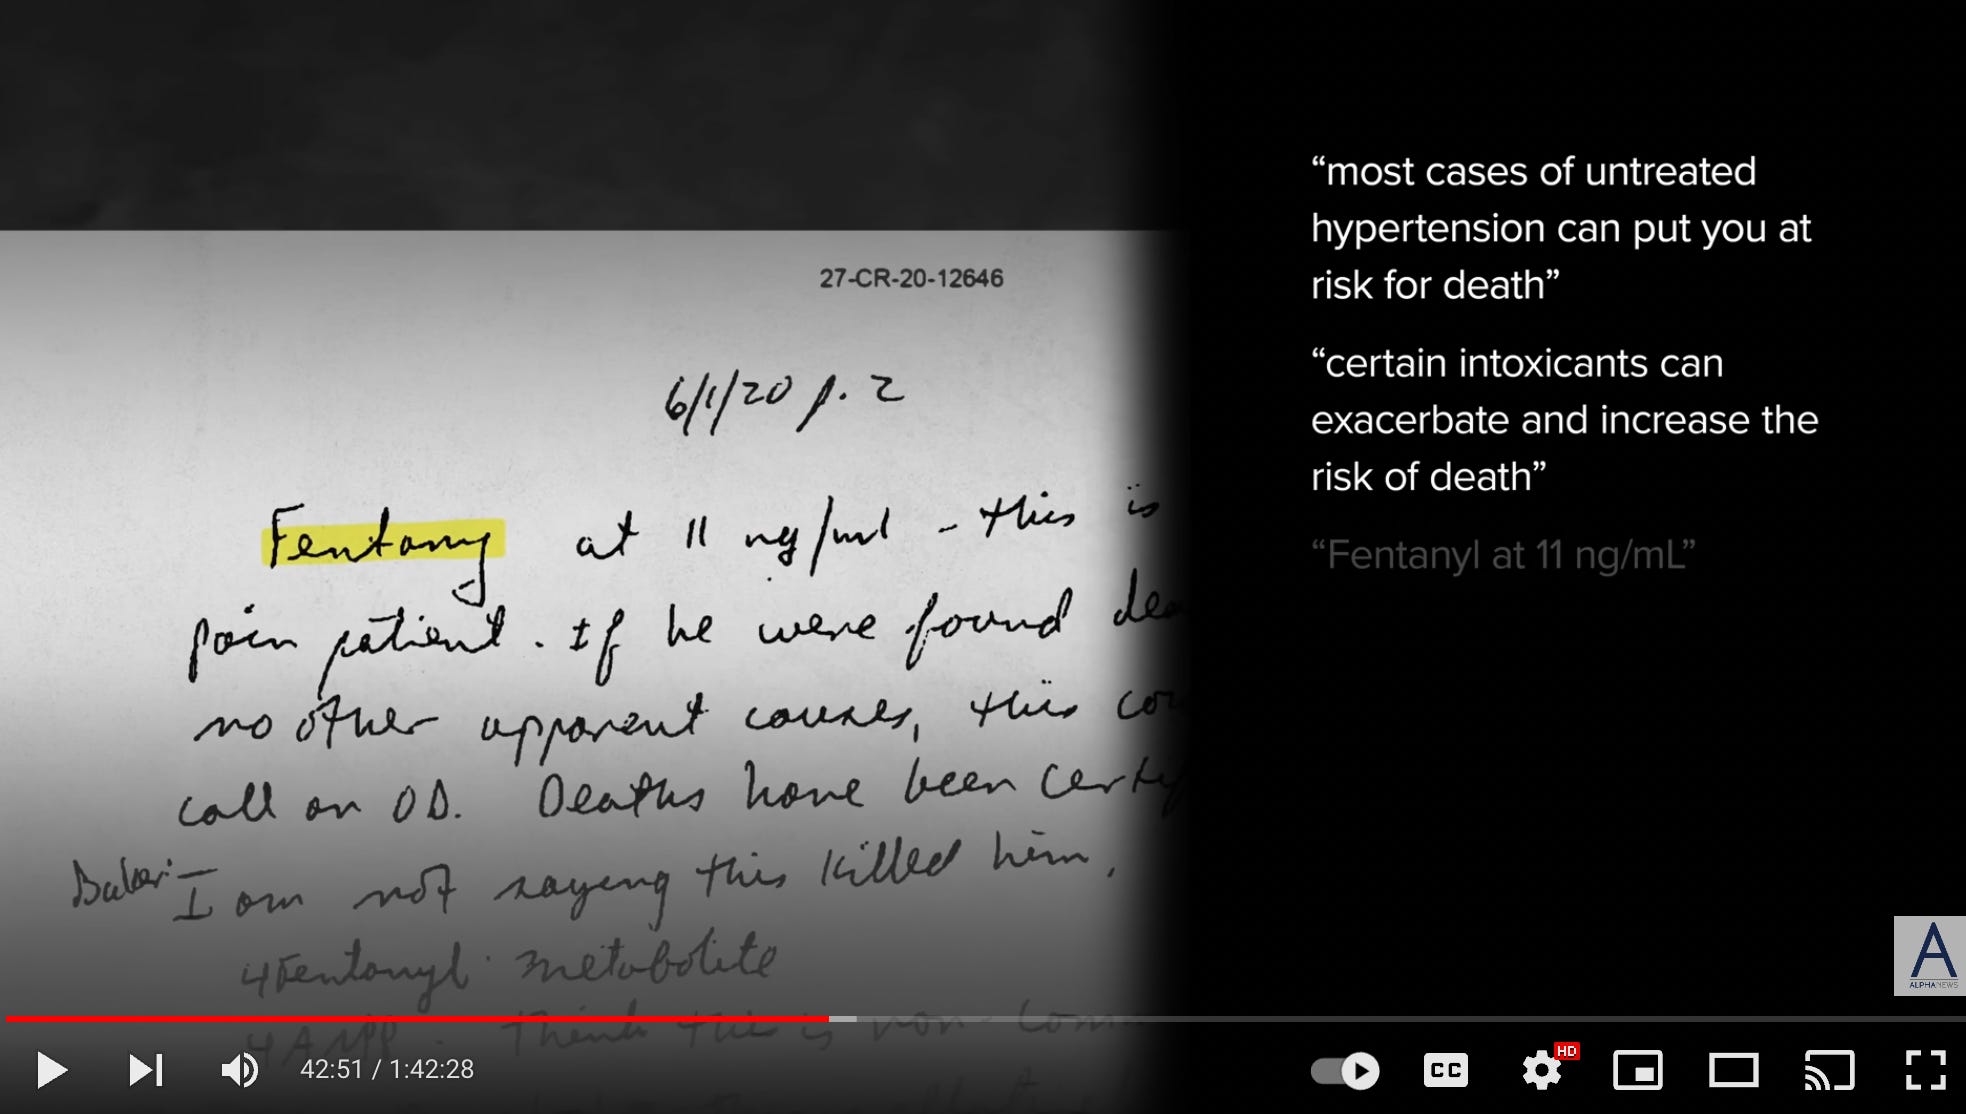 27-CR-20-12646
6/1/20 p. 2
Fentanyl at 11 ng/ml - this is
pain patient. If he were found dea
no other apparent causes, this co
call an OD. Deaths have been certif
Baker: I am not saying this killed him.
4Fentanyl metabolite
4ANPP. Think this is non-Comm
“most cases of untreated
hypertension can put you at
risk for death”
“certain intoxicants can
exacerbate and increase the
risk of death”
“Fentanyl at 11 ng/mL”
A
ALPHANEWS
42:51 / 1:42:28
CC
HD